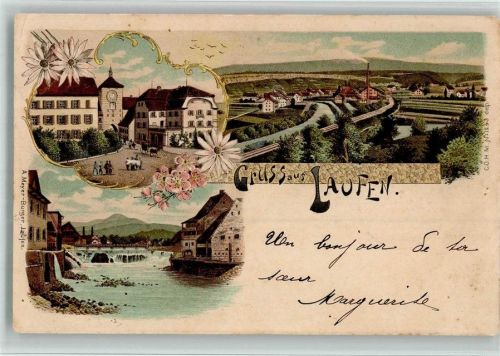 Gruss aus LAUFEN.
Un bonjour de ta
sœur
Marguerite
A. Meyer-Burger, Laufen.